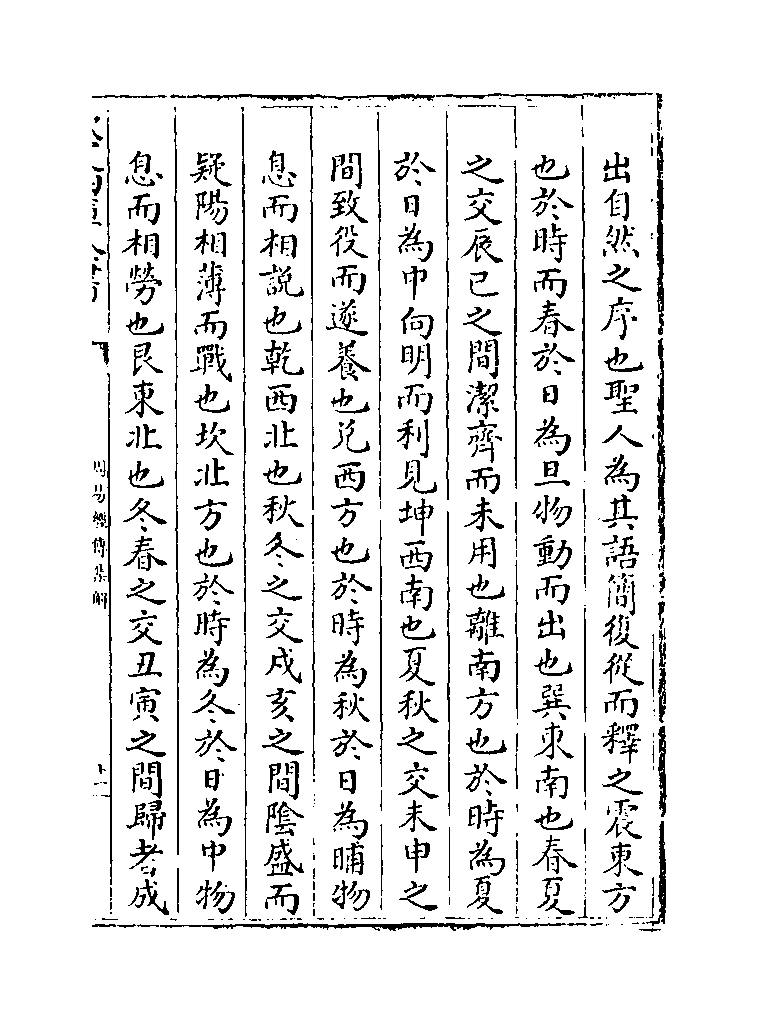 出自然之序也聖人為其語簡復從而釋之震東方
也於時而春於日為旦物動而出也巽東南也春夏
之交辰巳之間潔齊而未用也離南方也於時為夏
於日為中向明而利見坤西南也夏秋之交未申之
間致役而遂養也兑西方也於時為秋於日為晡物
息而相説也乾西北也秋冬之交戍亥之間陰盛而
疑陽相薄而戰也坎北方也於時為冬於日為中物
息而相勞也艮東北也冬春之交丑寅之間歸者成
周易經傳集解
十一